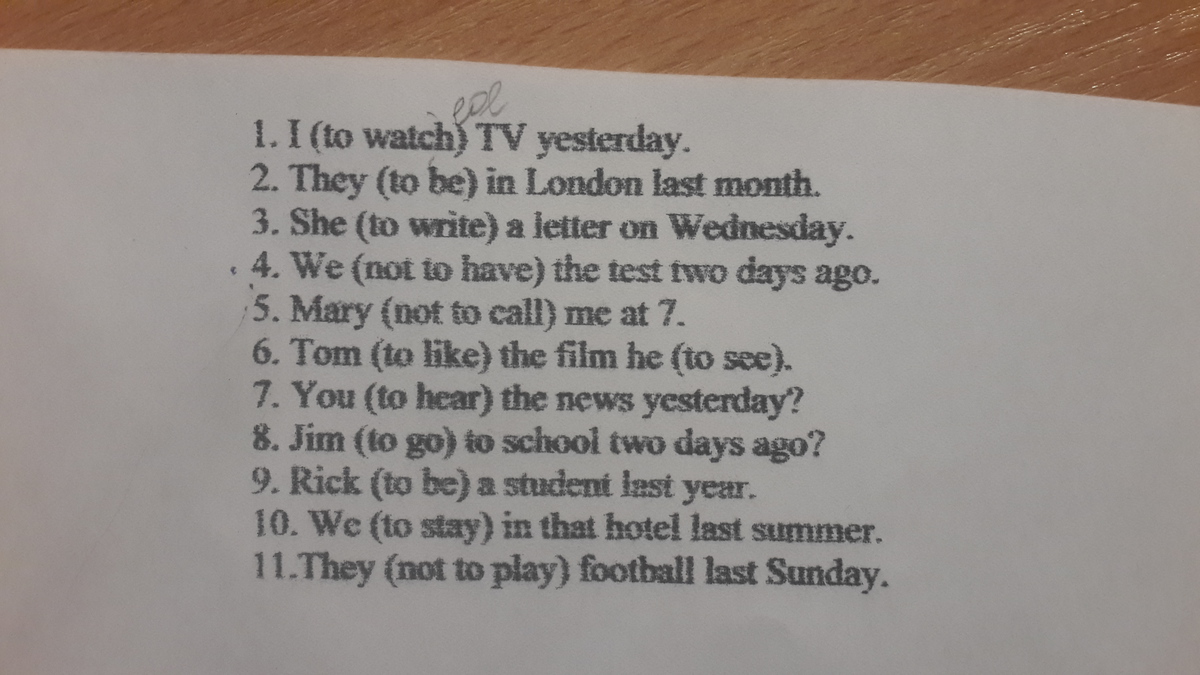 ed
1. I (to watch) TV yesterday.
2. They (to be) in London last month.
3. She (to write) a letter on Wednesday.
4. We (not to have) the test two days ago.
5. Mary (not to call) me at 7.
6. Tom (to like) the film he (to see).
7. You (to hear) the news yesterday?
8. Jim (to go) to school two days ago?
9. Rick (to be) a student last year.
10. We (to stay) in that hotel last summer.
11.They (not to play) football last Sunday.